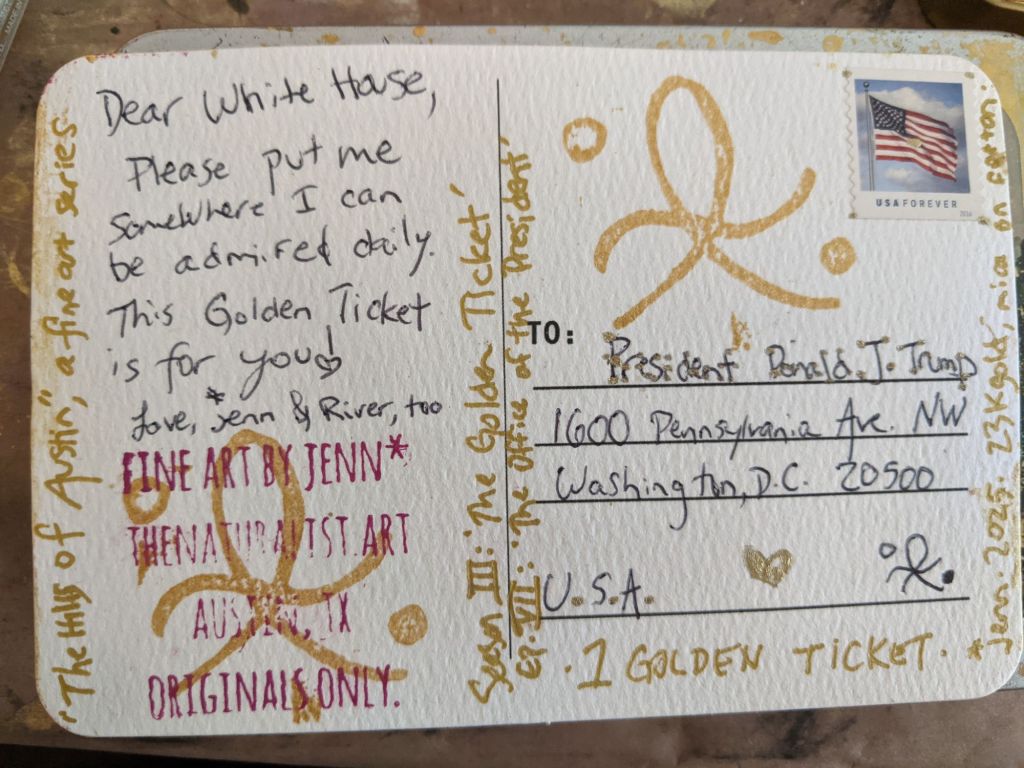 "The Hills of Austin," a fine art series.
Dear White House,
Please put me
somewhere I can
be admired daily.
This Golden Ticket
is for you!
Love, *Jenn & River, too
FINE ART BY JENN*
THENATURALIST.ART
AUSTIN, TX
ORIGINALS ONLY.
Season III: 'The Golden Ticket'
Ep. VII: 'The Office of the President'
USA FOREVER
2016
TO:
President Donald J. Trump
1600 Pennsylvania Ave. NW
Washington, D.C. 20500
U.S.A.
· 1 GOLDEN TICKET ·
*Jenn. 2025. 23K gold, mica on